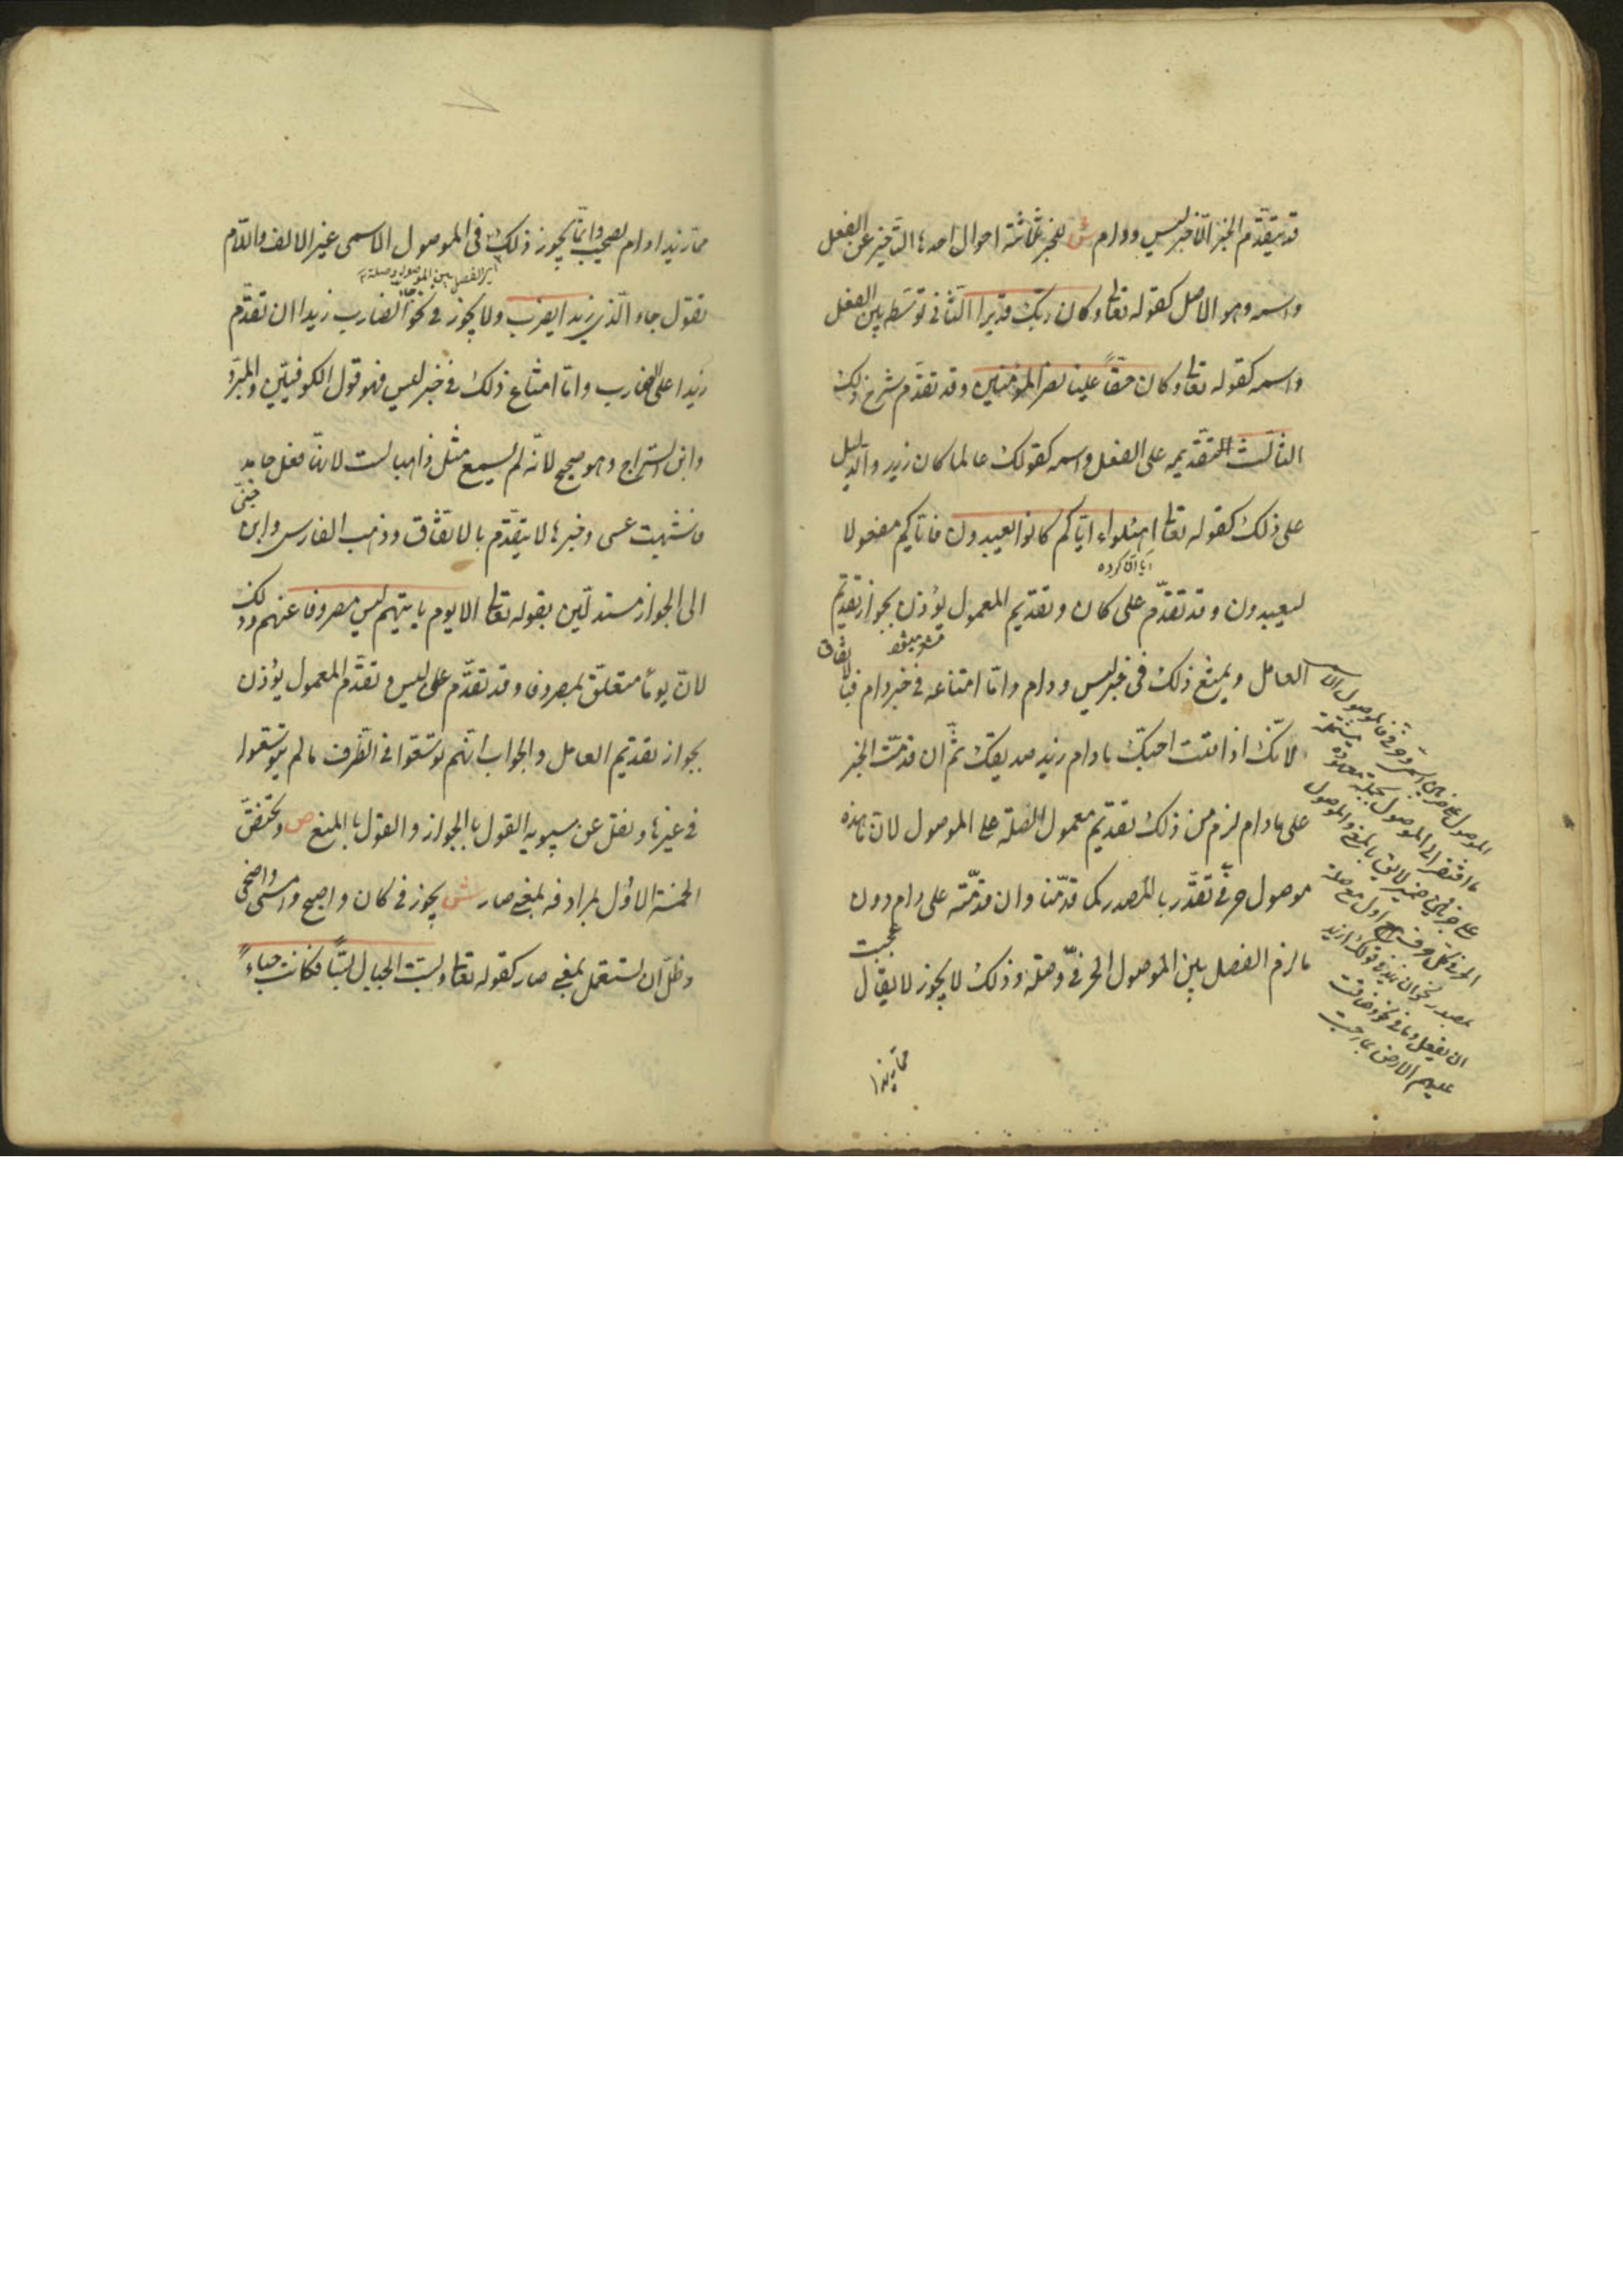 قد يتقدّم الخبر الّا خبر ليس ودام ش للخبر ثلاثة احوال احدها التاخير عن الفعل
واسمه وهو الاصل كقوله تعالى وكان ربّك قديرا الثانى توسّطه بين الفعل
واسمه كقوله تعالى وكان حقّاً علينا نصر المؤمنين وقد تقدّم شرح ذلك
الثالث التقديمه على الفعل واسمه كقولك عالما كان زيد والدليل
على ذلك كقوله تعالى اهؤلاء ايّاكم كانوا يعبدون فاياكم مفعول لا
ليعبدون وقد تقدّم على كان وتقديم المعمول يؤذن بجواز تقديم
العامل ويمتنع ذلك فى خبر ليس ودام وامّا امتناعه فى خبر دام فبالاتفاق
لانّك اذا قلت احبّك ما دام زيد صديقك ثمّ ان قدمّت الخبر
على ما دام لزم من ذلك تقديم معمول الصّلة على الموصول لانّ ما هذه
موصول حرفىّ تقدّر بالمصدر كما قدّمنا وان قدمّته على دام دون
ما لزم الفصل بين الموصول الحرفىّ وصلته وذلك لا يجوز لا يقال عجبت
ممّا زيدا
الموصول على ضربين اسمىّ وحرفىّ فالموصول الا
ما افتقر الى الموصول بجملة معهودة مشتملة
على ضمير لايق بالمعنى والموصول
الحرفى كل حرف اول مع صلته
بمصدر نحو ان
عليهم الارض بما رحبت
ممّا زيدا دام لصحيب وانّما يجوز ذلك فى الموصول الاسمى غير الالف واللّام
اى الفصل بين الموصول وصلته
تقول جاء الّذى زيدا يضرب ولا يجوز فى نحو جاء الضارب زيدا ان تقدّم
زيدا على الضارب وامّا امتناع ذلك فى خبر ليس فهو قول الكوفيّين والمبرّد
وابن السّراج وهو صحيح لانّه لم يسمع مثل ذاهبا لست لانّها فعل جامد
فاشبهت عسى وخبرها لا يتقدّم بالاتّفاق وذهب الفارسى وابن جنّى
الى الجواز مستدلّين بقوله تعالى الا يوم ياتيهم ليس مصروفا عنهم وذلك
لانّ يوما متعلّق بمصروفا وقد تقدّم على ليس وتقدّم المعمول يؤذن
بجواز تقديم العامل والجواب انّهم توسّعوا فى الظّرف ما لم يتوسّعوا
فى غيرها ونقل عن سيبويه القول بالجواز والقول بالمنع ص وتختصّ
الخمسة الاوّل بمرادفة بمعنى صار ش يجوز فى كان واصبح وامسى واضحى
وظلّ ان تستعمل بمعنى صار كقوله تعالى وبسّت الجبال بسّاً فكانت هباءً